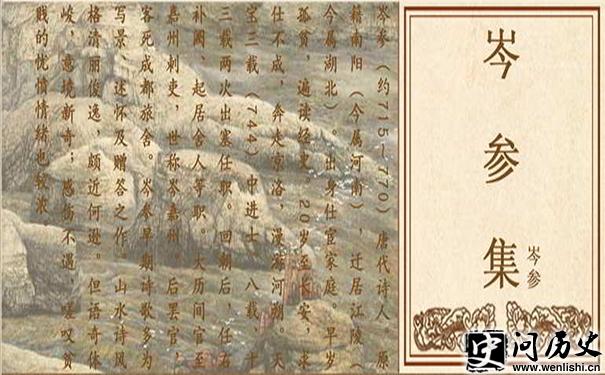 岑参集
岑参
岑参（约715—770）唐代诗人，原
籍南阳（今属河南），迁居江陵（
今属湖北）。出身仕宦家庭。早岁
孤贫，遍读经史。20岁至长安，求
仕不成，奔走京洛，漫游河朔。天
宝三载（744）中进士。八载、十
三载两次出塞任职。回朝后，任右
补阙、起居舍人等职。大历间官至
嘉州刺史，世称岑嘉州。后罢官，
客死成都旅舍。岑参早期诗歌多为
写景、述怀及赠答之作。山水诗风
格清丽俊逸，颇近何逊。但语奇体
峻，意境新奇；感伤不遇，嗟叹贫
贱的忧愤情绪也较浓
史 问历史
www.wenlishi.cn